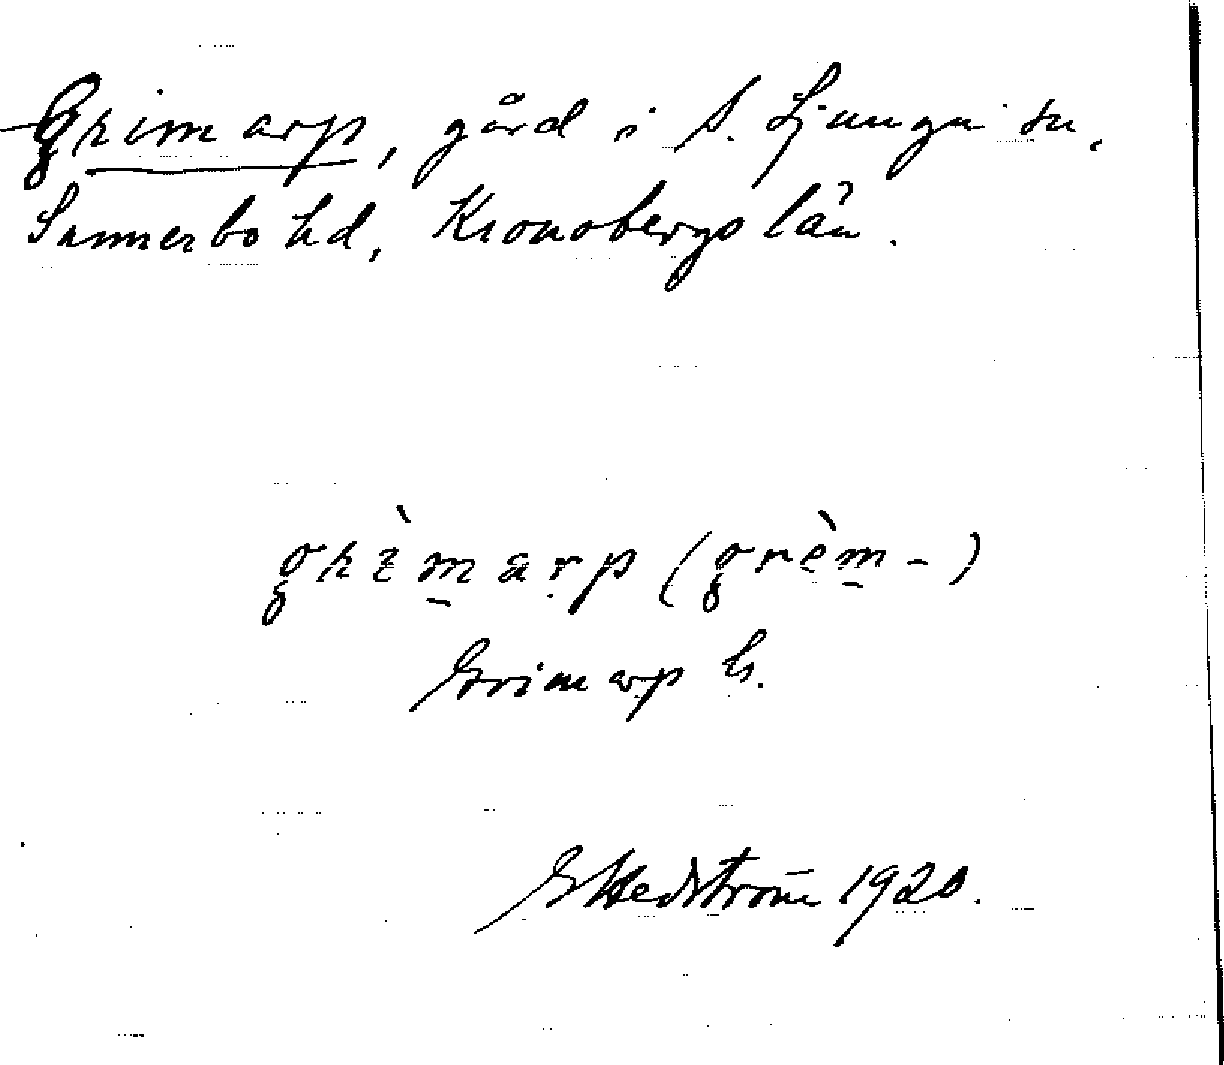 Grimarp, gård i S. Ljunga sn,
Sunnerbo hd, Kronobergs län.
grìmarp (grèm-)
Grimarp
G Hedström 1920.